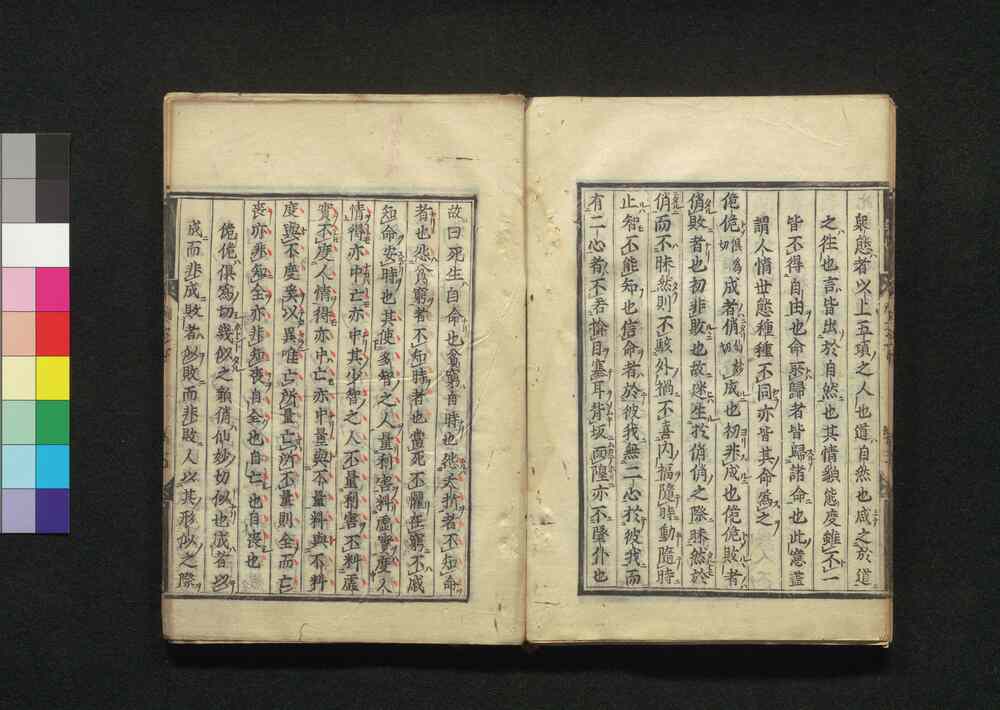 衆態者以上五項之人也道自然也咸之於道
之往也言皆出於自然也其情貌態度雖不一
皆不得自由也命所歸者皆歸諸命也此意蓋
謂人情世態種種不同亦皆其命爲之
佹佹俱爲切成者俏成也初非成也佹佹敗者
俏敗者也初非敗也故迷生於俏俏之際昧然於
俏而不昧然則不駭外禍不喜内福隨時動隨時
止智不能知也信命者於彼我無二心於彼我而
有二心者不若揜目塞耳背坂面隍亦不墜仆也
故曰死生自命也貧窮自時也怨夭折者不知命
者也怨貧窮者不知時者也當死不懼在窮不戚
知命安時也其使多智之人量利害料虛實度人
情得亦中亡亦中其少智之人不量利害不料虛
實不度人情得亦中亡亦中量與不量料與不料
度與不度奚以異唯亡所量亡所不量則全而亡
喪亦非知全亦非知喪自全也自亡也自喪也
佹佹俱爲切幾似之貌俏仙妙切似也成者似
成而非成敗者似敗而非敗人以其形似之際